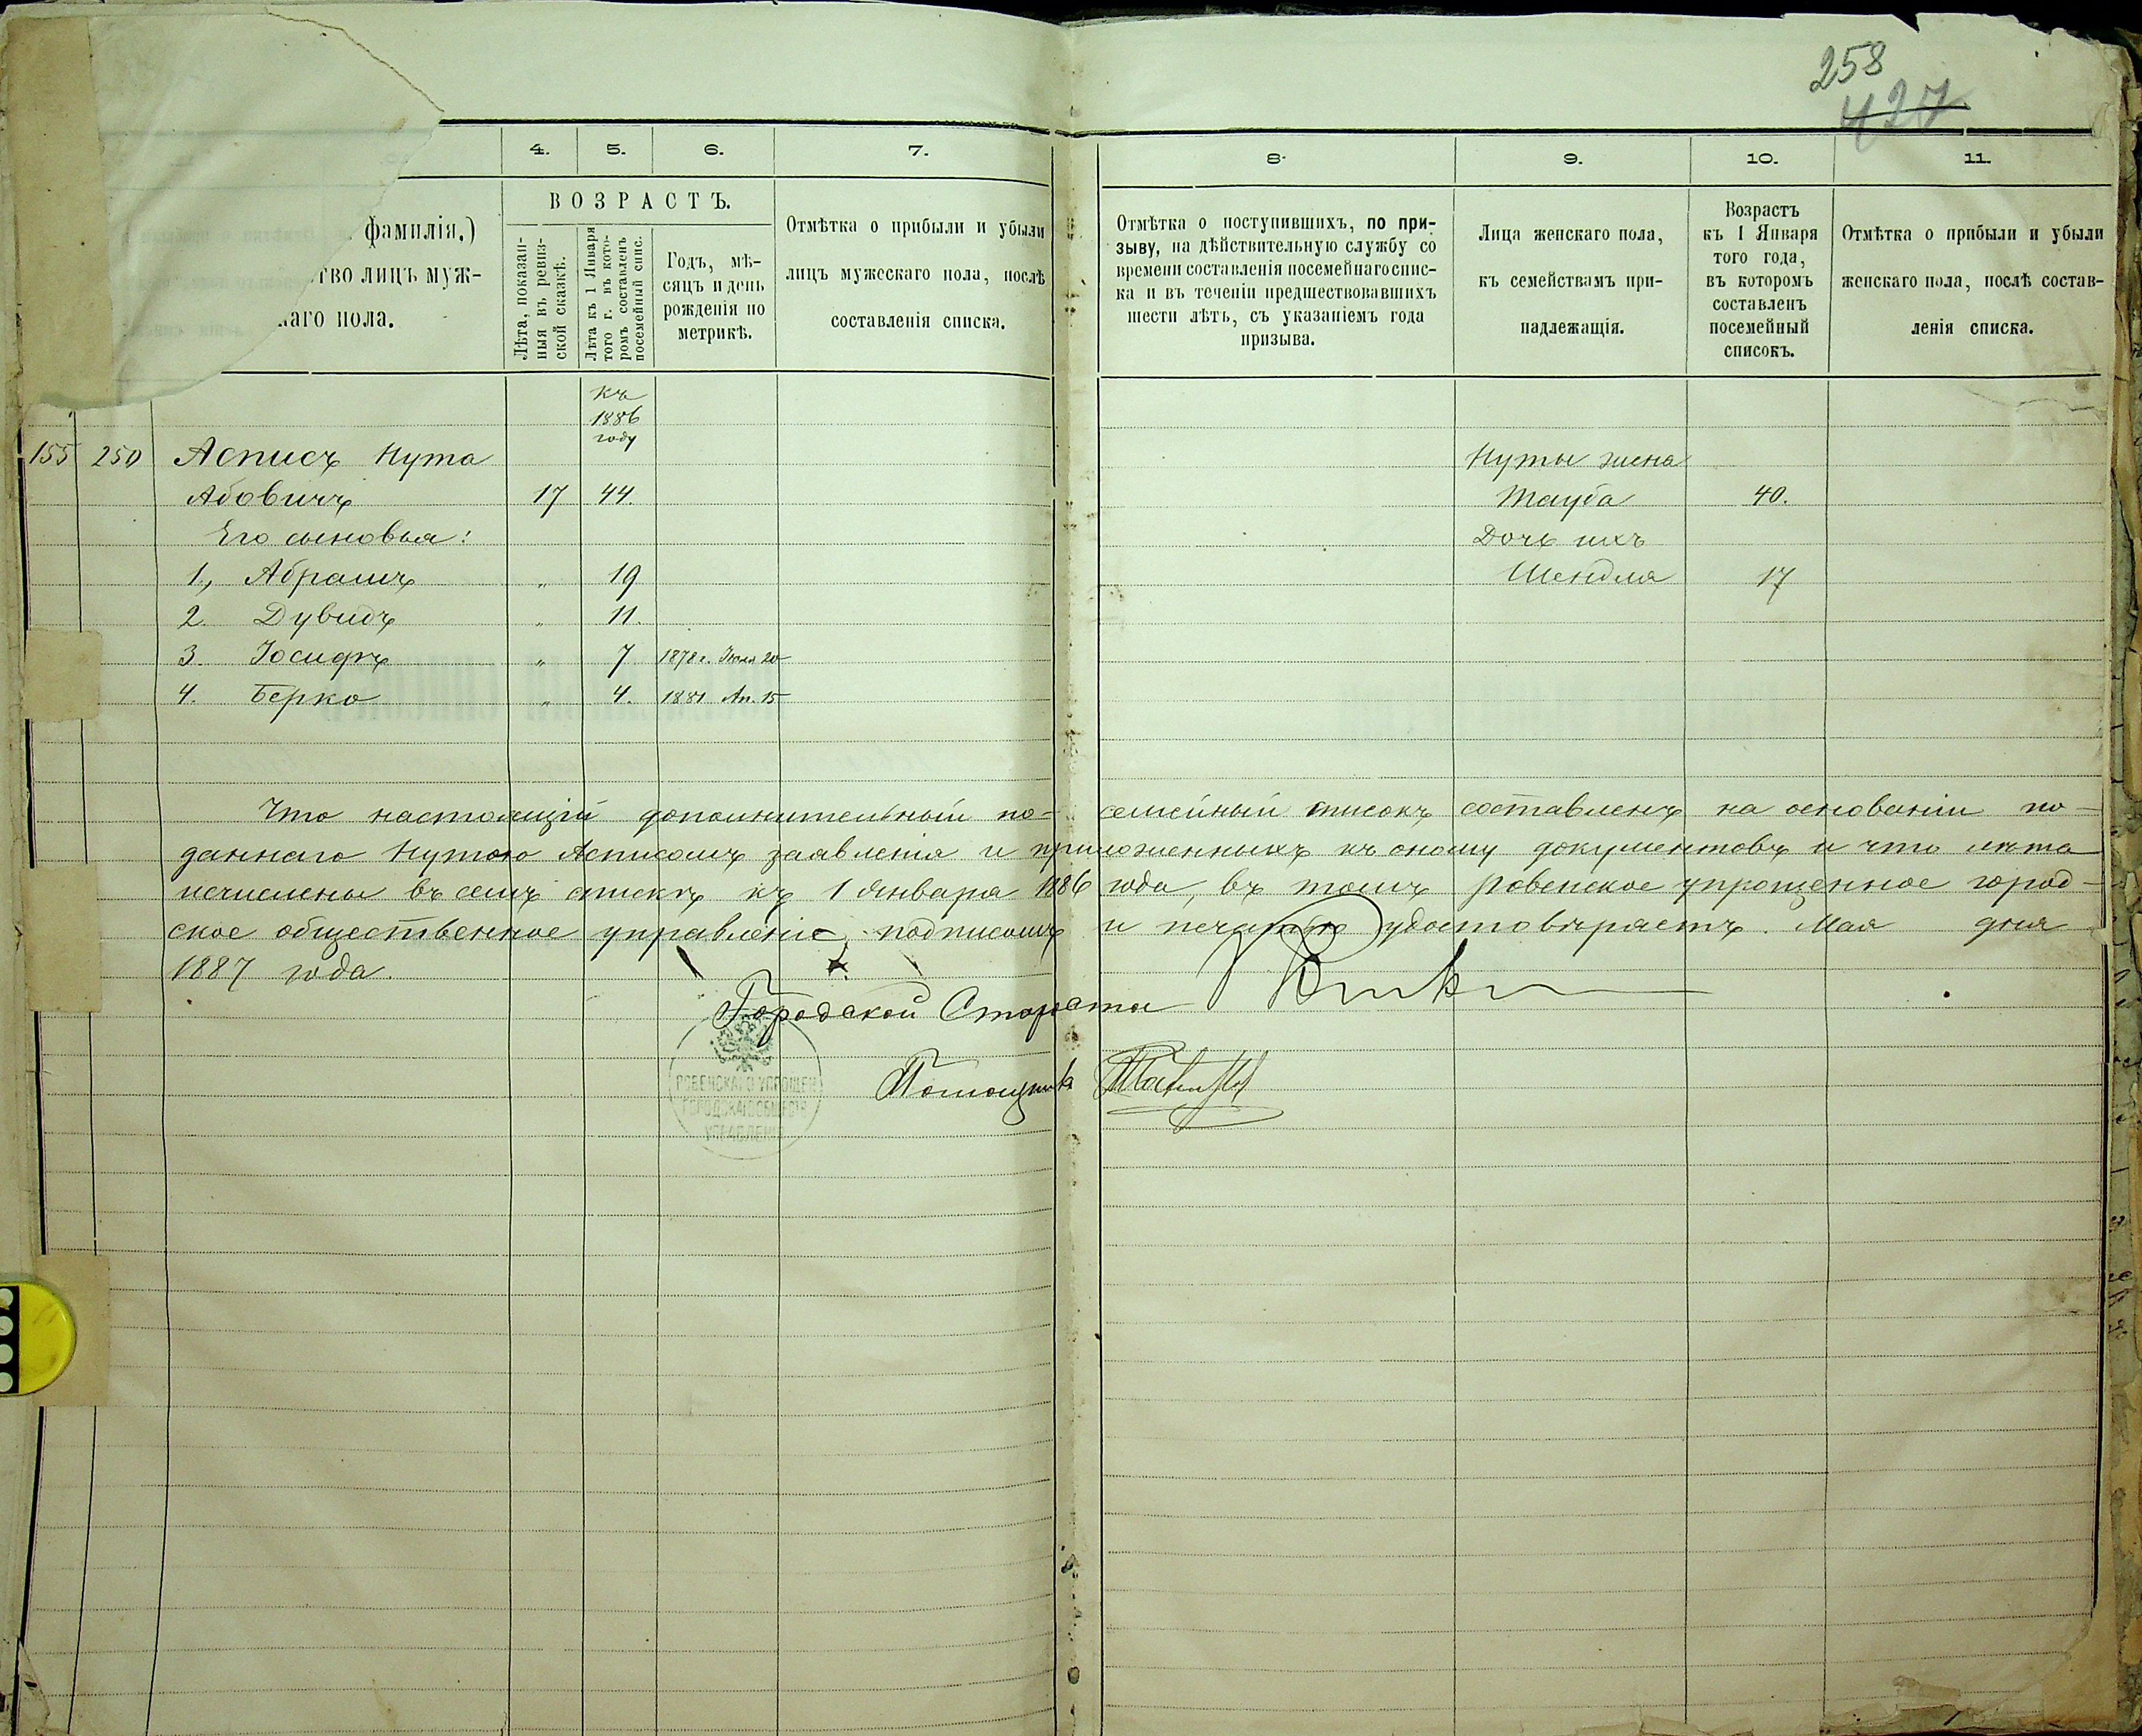 258
427
4. 5. 6. 7. 8. 9. 10. 11.
фамилія.)
тво лицъ муж-
каго пола.
ВОЗРАСТЪ.
Лѣта, показан-
ныя въ ревиз-
ской сказкѣ.
Лѣта къ 1 Января
того г. въ кото-
ромъ составленъ
посемейный спис.
Годъ, мѣ-
сяцъ и день
рожденія по
метрикѣ.
Отмѣтка о прибыли и убыли
лицъ мужескаго пола, послѣ
составленія списка.
Отмѣтка о поступившихъ, по при-
зыву, на дѣйствительную службу со
времени составленія посемейнаго спис-
ка и въ теченіи предшествовавшихъ
шести лѣтъ, съ указаніемъ года
призыва.
Лица женскаго пола,
къ семействамъ при-
надлежащія.
Возрастъ
къ 1 Января
того года,
въ которомъ
составленъ
посемейный
списокъ.
Отмѣтка о прибыли и убыли
женскаго пола, послѣ состав-
ленія списка.
къ
1886
году
155 250 Асписъ Нута Нуты жена
Абовичъ 17 44. Тауба 40.
Его сыновья: Дочь ихъ
1, Абрамъ " 19 Шендля 17
2. Дувидъ " 11.
3. Іосифъ " 7 1878 г. Іюля 20
4. Берко " 4. 1881 Ап. 15
Что настоящій дополнительный по- семейный списокъ составленъ на основаніи по-
даннаго Нутою Асписомъ заявленія и приложенныхъ къ оному документовъ и что лѣта
исчислены въ семъ спискѣ къ 1 Января 1886 года, въ томъ Ровенское упрощенное город-
ское общественное управленіе, подписомъ и печатью удостовѣряетъ. Мая дня
1887 года.
Городской Староста
Помощникъ
РОВЕНСКАГО УПРОЩЕН
ГОРОДСКАГО ОБЩЕСТВ
УПРАВЛЕНІЯ